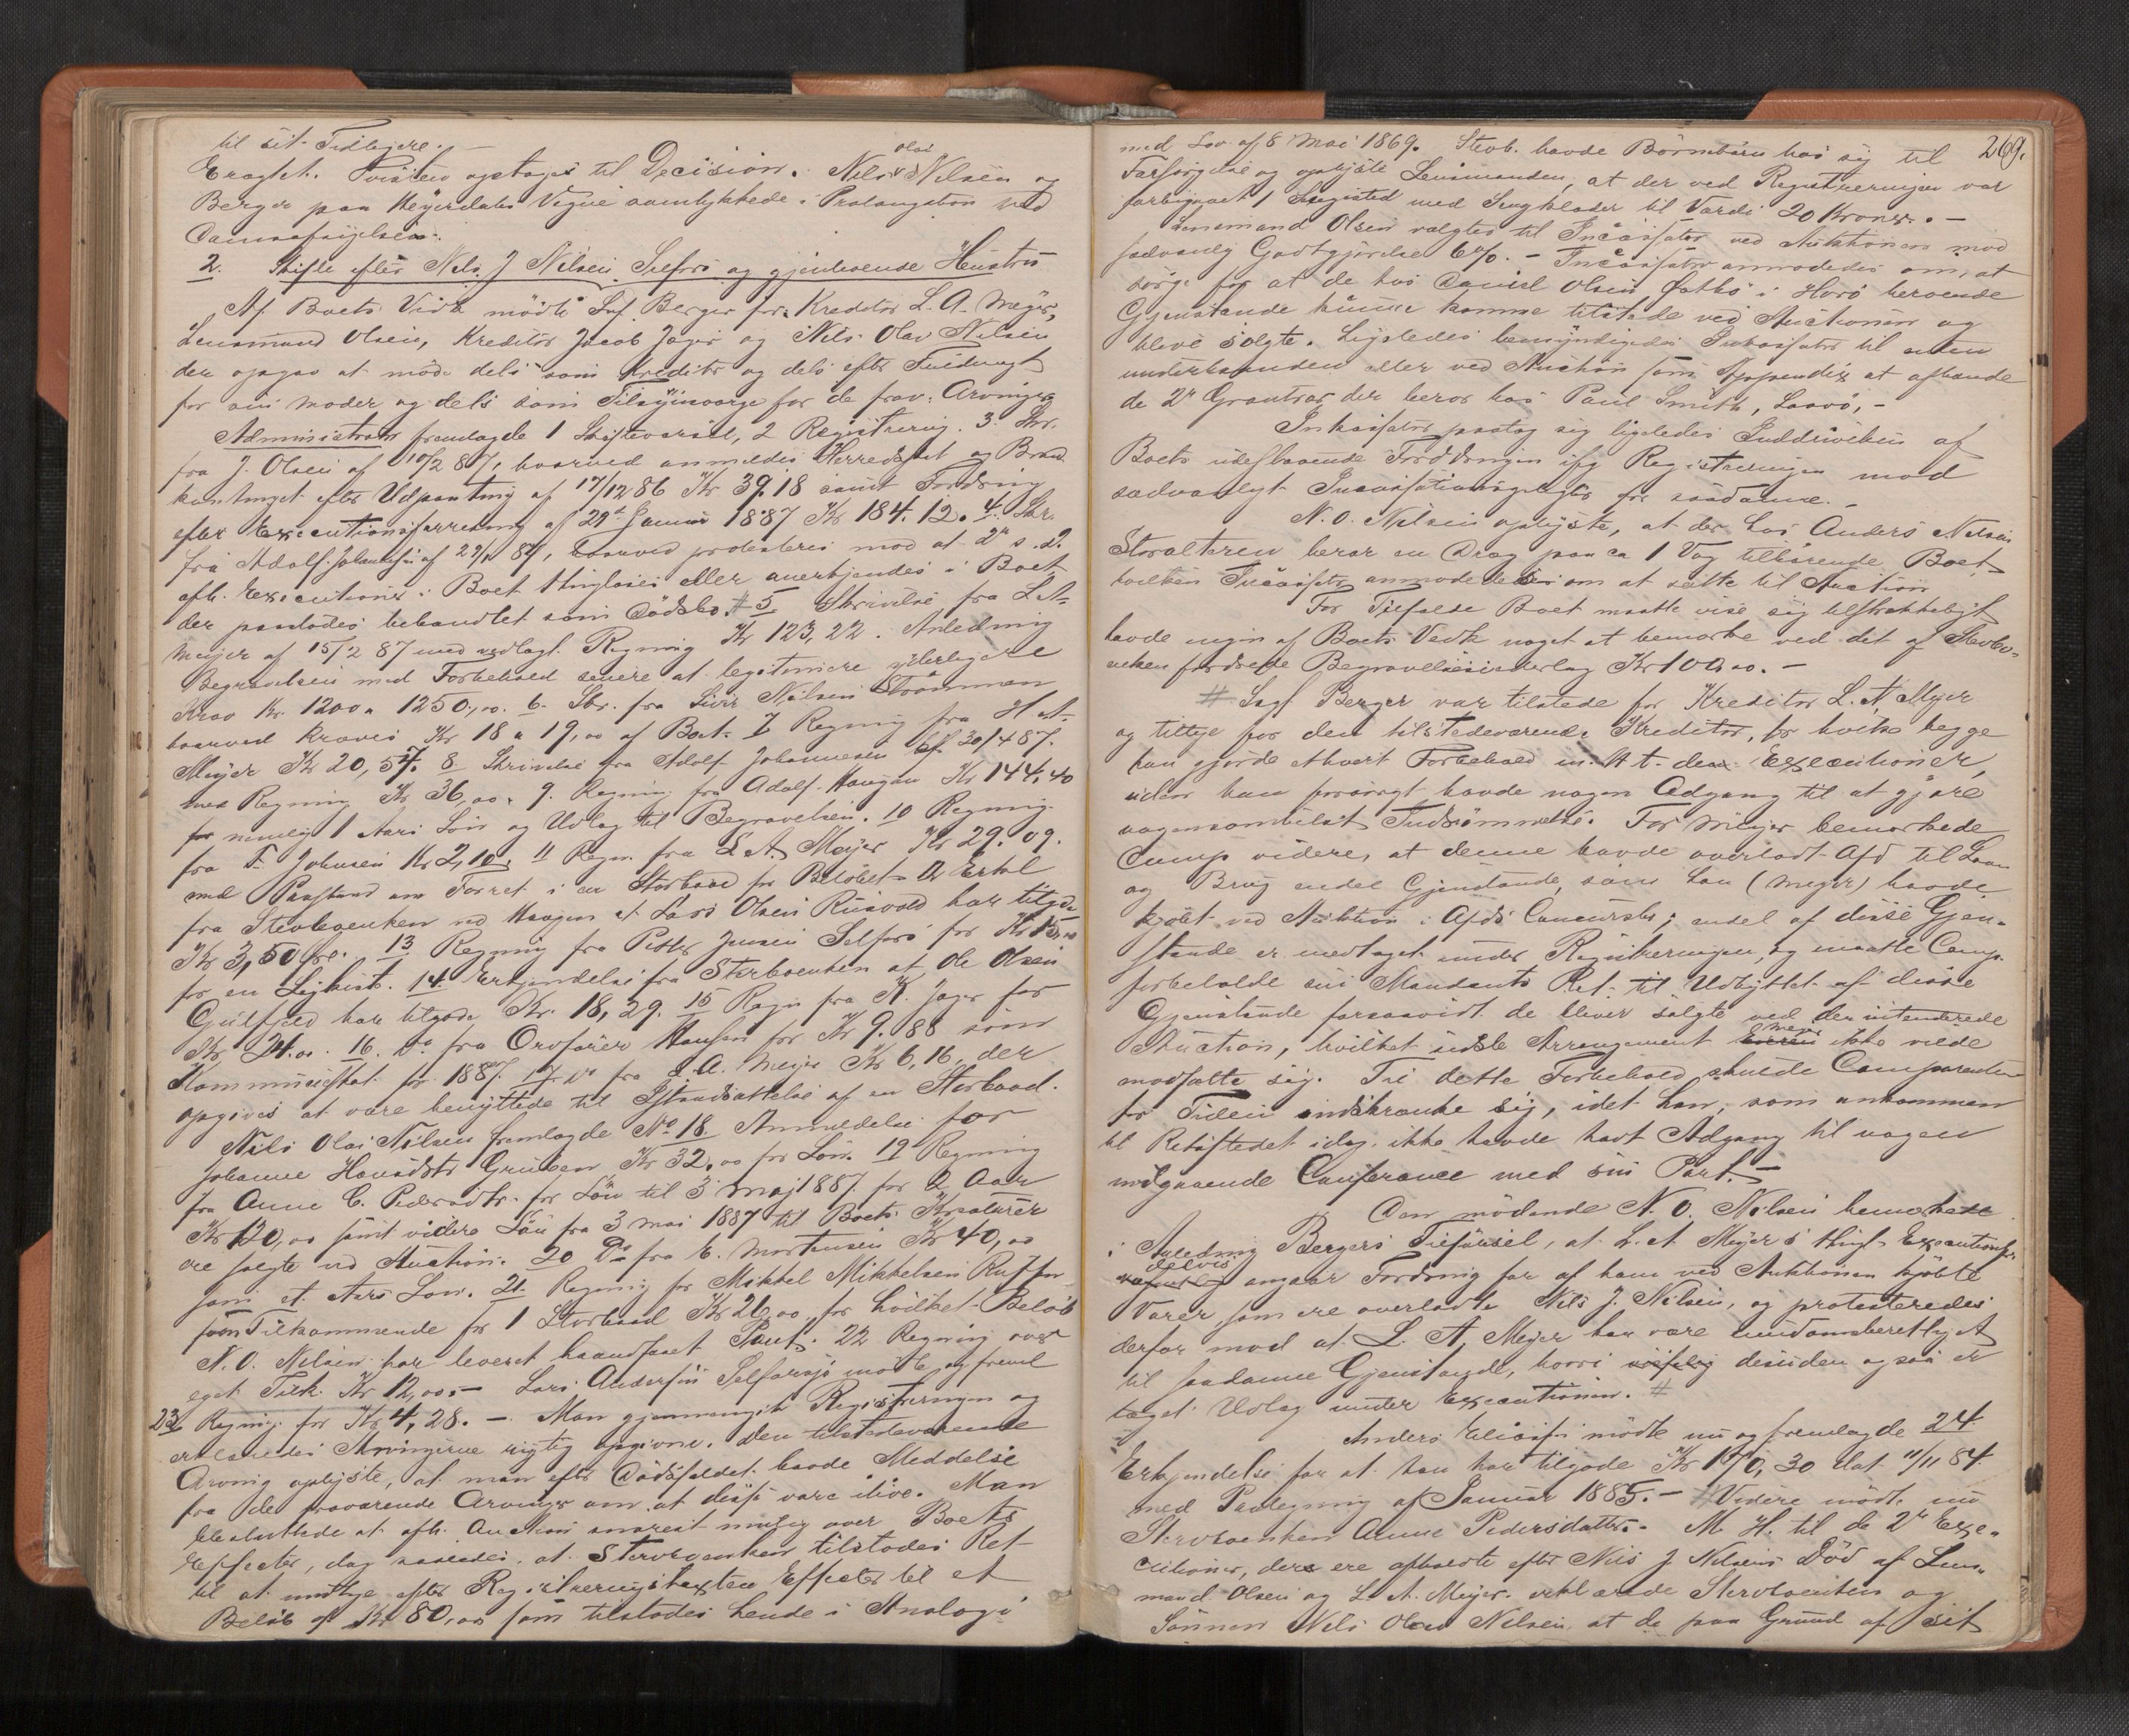 til sit Tidligere. —
Eragtet. Tvisten optages til Decision. Nils Olai Nilsen og
Berger paa Meyerdahls Vegne samtykkede i Prolongation ved
Domsafsigelsen.
2. Skifte efter Nils J Nilsen Selfors og gjenlevende Hustru
Af Boets Vedk mødte Sf. Berger for Kreditor L. A. Meyer,
Lensmand Olsen, Kreditor Jacob Jager og Nils Olai Nilsen
der opgav at møde dels som Kreditor og dels efter Fuldmagt
for sin Moder og dels som Tilsynsværge for de frav. Arvinger
Administrator fremlagde 1 Skiftevarsel, 2 Registrering. 3. Skr.
fra J. Olsen af 10/2 87, hvorved anmeldes Herredsskat og Brand
kontingent efter Udpantning af 17/12 86 Kr 39.18 samt Fordring
efter Executionsforretning af 29de Januar 1887 Kr 184.12. 4. Skr.
fra Adolf Johannesen af 29/1 87, hvorved protesteres mod at 2de s. D.
afh. Executioner i Boet thinglæses eller anerkjendes i Boet
der paastodes behandlet som Dødsbo. # 5 Skrivelse fra L A
Meyer af 15/2 87 med vedlagt Regning Kr 123,22. Anledning
Begravelsen med Forbehold senere at legitimere yderligere
Krav Kr. 1200 a 1250,00. 6. Skr. fra Sivir Nilsen Strømmen
hvorved kræves Kr 18 a 19,00 af Boet. 7 Regning fra H A
Meyer Kr 20,57. 8 Skrivelse fra Adolf Johannesen af 30/4 87.
med Regning Kr 36,00. 9. Regning fra Adolf Haugan Kr 144,40
for nemlig 1 Aars Løn og Udlæg til Begravelsen. 10 Regning
fra F. Johnsen Kr 2,10. 11 Regn. fra L A Meyer Kr 29.09.
med Paastand om Forret i en Storbaad for Beløbet. 12 Erkl
fra Stervboenken ved Haagen at Lars Olsen Rusvold har tilgode
Kr 3,50 øre. 13 Regning fra Petter Jensen Selfors for Kr 15,00
for en Ligkist. 14. Erkjendelse fra Sterboenken at Ole Olsen
Gulfjeld har tilgode Kr. 18,29. 15 Regn fra K. Jager for
Kr 24.00. 16. Do fra Ordfører Hansen for Kr 9.88 som
Kommuneskat for 1887. 17 Do fra L. A. Meyer Kr 6,16, der
opgives at være benyttede til Istandsættelse af en Storbaad.
Nils Olai Nilsen fremlagde No 18 Anmeldelse for
Johanne Hansdtr Gruben Kr 32.00 for Løn. 19 Regning
fra Anne C. Pedersdtr. for Løn til 3 Maj 1887 for 2 Aar
Kr 120,00 samt videre Løn fra 3 Mai 1887 til Boets Kreaturer
ere solgte ved Auction. 20 Do fra E. Mortensen Kr 40,00
som et Aars Løn. 21. Regning for Mikkel Mikkelsen
som Tilkommende for 1 Storbaad Kr 26,00, for hvilket Beløb
N. O. Nilsen har leveret haandfaaet Pant. 22 Regning over
eget Tilk. Kr 12,00. — Lars Andersen Selforsjo mødte og freml
23 Regning for Kr 4,28. — Man gjennemgik Registreringen og
erklæredes Arvingerne rigtig opgivne. Den tilstedeværende
Arving oplyste, at man efter Dødsfaldet havde Meddelse
fra de fraværende Arvinger om at disse vare ilive. Man
besluttede at afh. Auction snarest mulig over Boets
Effecter, dog saaledes, at Stervboenken tilstodes Ret
til at udtage efter Registreringstaxten Effecter til et
Beløb af Kr 80,00 som tilstodes hende i Analogi
269.
med Lov af 8 Mai 1869. Stevb. havde Børnebørn hos sig til
Forsørgelse og oplyste Lensmanden, at der ved Registreringen var
forbigaaet 1 Sengested med Sengklæder til Værdi 20 Kroner. —
Lensmand Olsen valgtes til Incassator ved Auktionen mod
sædvanlig Godtgjørelse 6%. — Incassator anmodedes om, at
sørge for at de hos Daniel Olsen i Horø beroende
Gjenstande kunne komme tilstede ved Auctionen og
blive solgte. Ligeledes bemyndigedes Inkassator til enten
underhaanden eller ved Auktion som Appendix at afhænde
de 2de der beror hos Paul Smith, Lovø. —
Inkassator paatog sig ligeledes Inddrivelsen af
Boets udestaaende Fordringer ifg Registreringen mod
sædvanlyt Incassationsgebyr for saadanne. —
N. O. Nilsen oplyste, at der hos Anders Nilsen
Storalteren beror en Drag paa ca 1 Vog tilhørende Boet,
hvilken Incassator anmodedes om at sætte til Auction
For Tilfælde Boet maatte vise sig tilstrækkeligt
havde ingen af Boets Vedk noget at bemærke ved det af Stevbo-
enken fordrede Begravelsesudlæg Kr 100,00. —
# Sagf Berger var tilstede for Kreditor L. A. Meyer
og tillige for den tilstedeværende Kreditor, for hvilke begge
han gjorde ethvert Forbehold m. H. t. den Executioner,
uden han forøvrigt havde nogen Adgang til at gjøre
nogensomhelst Indrømmelse. For Meyer bemærkede
Comp videre, at denne havde overladt Afd til Laan
og Brug endel Gjenstande, som han (Meyer) havde
kjøbt ved Auktion i Afds Concursbo; endel af disse Gjen-
stande er medtaget under Registreringen, og maatte Comp.
forbeholde sin Mandants Ret til Udbyttet af disse
Gjenstande forsaavidt de bliver solgte ved den intenderede
Auction, hvilket sidste Arrangement Meyer ikke vilde
modsætte sig. Til dette Forbehold skulde Comparenten
for Tiden indskrænke sig, idet han, som ankommen
til Retsstedet idag, ikke havde havt Adgang til nogen
indgaaende Conference med sin Part. —
Den mødende N. O. Nilsen bemærkede
i Anledning Bergers Tilførsel, at L. A Meyers thingl. Executionsfor
delvis angaar Fordring for af ham ved Auktionen kjøbte
Varer som ere overladte Nils J. Nilsen, og protesteredes
derfor mod at L. A. Meyer kan være eiendomsberettiget
til saadanne Gjenstande, hvori desuden ogsaa er
taget Udlæg under Executionen. #
Anders Eliassen mødte nu og fremlagde 24
Erkjendelse for at han har tilgode Kr 170,30 dat. 11/11 84
med Paategning af Januar 1885. — # Videre mødte nu
Stervboenken Anne Pedersdatter. — M. H. til de 2de Exe-
cutioner, der ere afholdte efter Nils J Nilsens Død af Lens-
mand Olsen og L. A. Meyer, erklærede Stervboenken og
Sønnen Nils Olai Nilsen at de paa Grund af sit